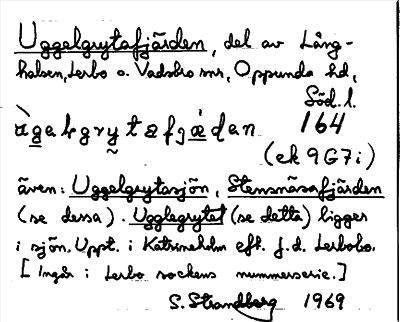 Uggelgrytafjärden, del av Lång-
halsen, Lerbo o. Vadsbro snr, Oppunda hd,
Söd. l.
164
(ek 9G7i)
även: Uggelgrytasjön, Stensnäsafjärden
(se dessa). Ugglegrytet (se detta) ligger
i sjön. Uppt. i Katrineholm eft. f.d. Lerbobo.
[Ingår i Lerbo sockens nummerserie.]
S. Strandberg 1969